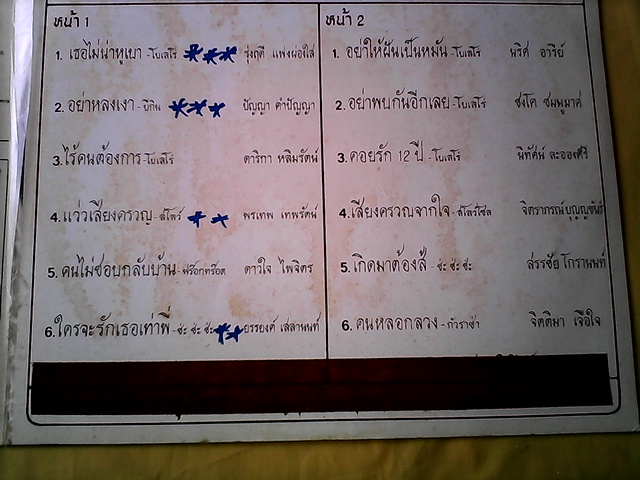 หน้า 1
1. เธอไม่น่าหูเบา - โบเลโร่ รุ่งฤดี แพ่งผ่องใส
2. อย่าหลงเงา - บิกิน ปัญญา คำปัญญา
3. ไร้คนต้องการ - โบเลโร่ ดาริกา หลิมรัตน์
4. แว่วเสียงครวญ - สโลว์ พรเทพ เทพรัตน์
5. คนไม่ชอบกลับบ้าน - ฟร๊อกทร๊อต ดาวใจ ไพจิตร
6. ใครจะรักเธอเท่าพี่ - ช่ะ ช่ะ ช่ะ ยรรยงค์ เสลานนท์
หน้า 2
1. อย่าให้ฝันเป็นหมัน - โบเลโร่ นริศ อารีย์
2. อย่าพบกันอีกเลย - โบเลโร่ ชงโค ชมพูมาศ
3. คอยรัก 12 ปี - โบเลโร่ นิทัศน์ ละอองศรี
4. เสียงครวญจากใจ - สโลว์โซล จิตราภรณ์ บุญญขันธ์
5. เกิดมาต้องสู้ - ช่ะ ช่ะ ช่ะ สรรชัย โกรานนท์
6. คนหลอกลวง - กัวราช่า จิตติมา เจือใจ